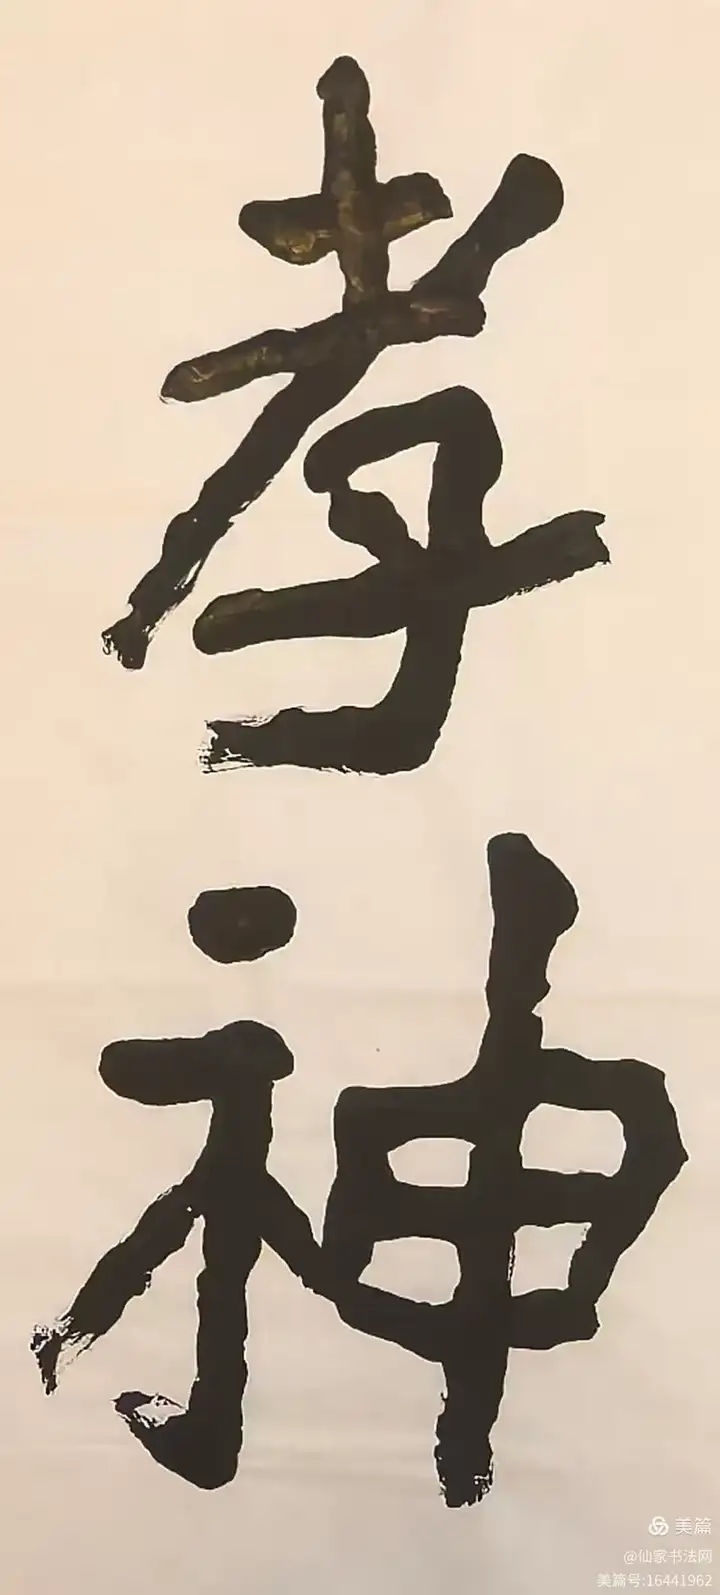 孝
神
美篇
@仙家书法网
美篇号:16441962